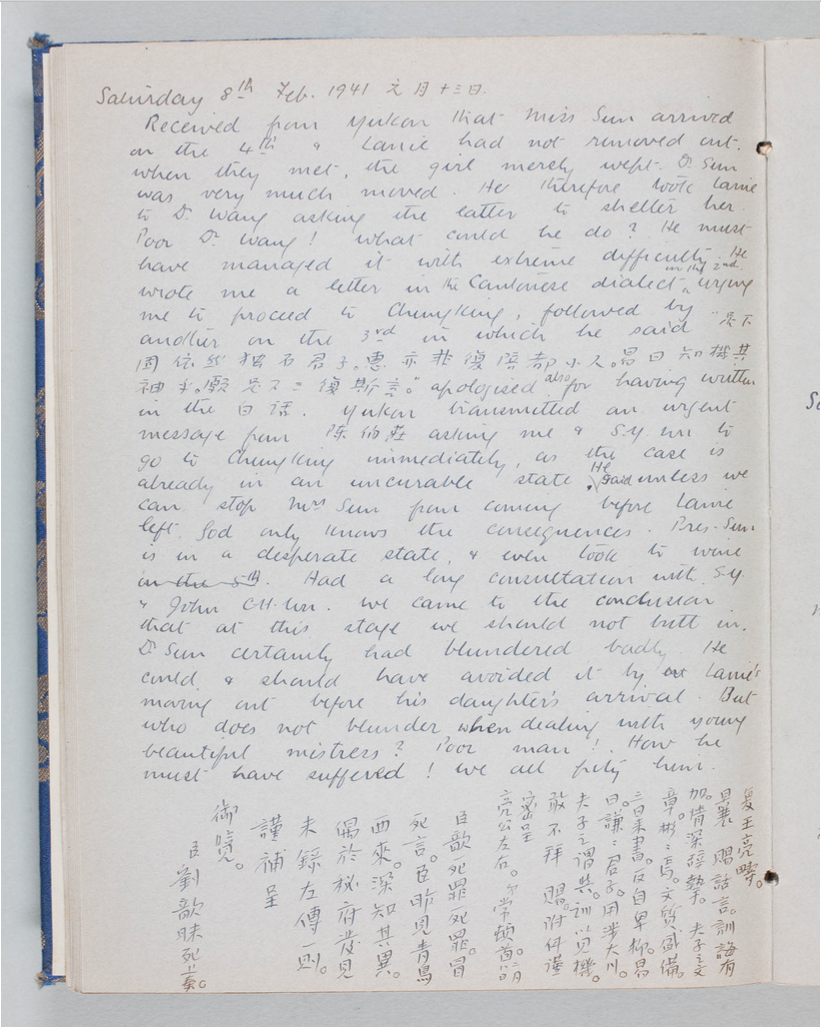 Saturday 8th Feb. 1941 元月十三日.
Received from Yukon that Miss Sun arrived
on the 4th & Lanie had not removed out.
when they met, the girl merely wept. Dr. Sun
was very much moved. He therefore took Lanie
to Dr. Wang asking the latter to shelter her.
Poor Dr. Wang! What could he do? He must
have managed it with extreme difficulty. He
wrote me a letter in the Cantonese dialect on the 2nd urging
me to proceed to Chungking, followed by
another on the 3rd in which he said "足下
固依然獨石君子。惠亦非復陪都小人。曷日知機其
袖手。願足下三復斯言。" apologised also for having written
in the 白话. Yukon transmitted an urgent
message from 陈伯莊 asking me & S.Y. to
go to Chungking immediately, as the case is
already in an uncurable state. He said unless we
can stop Mrs Sun from coming before Lanie
left. God only knows the consequences. Pres. Sun
is in a desperate state, & even took to wine
in the 5th. Had a long consultation with S.Y.
& John C.H. Wu. We came to the conclusion
that at this stage we should not butt in.
Dr Sun certainly had blundered badly. He
could & should have avoided it by Lanie's
moving out before his daughter's arrival. But
who does not blunder when dealing with young
beautiful mistress? Poor man! How he
must have suffered! We all pity him.
復王亮疇。
曩賜話言。訓誨有
加。情深辭摯。夫子之文
章。彬彬焉。文質咸備。
三日来書。反自卑抑。易
曰。謙謙君子。用涉大川。
夫子之謂與。訓以見機。
敢不拜賜。附件謹
密呈
亮公左右。 常頓首
臣歆死罪死罪。冒
死言。臣昨見青鳥
西來。深知其異。
偶於秘府發見
未錄左傳一則。
謹補呈
御覽。
臣劉歆昧死上奏。